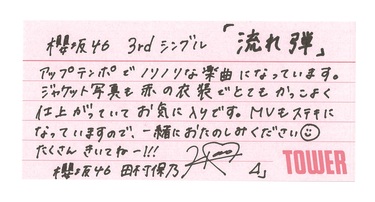 櫻坂46 3rdシングル 「流れ弾」
アップテンポでノリノリな楽曲になっています。
ジャケット写真も赤の衣装でとてもかっこよく
仕上がっていてお気に入りです。MVもステキに
なっていますので、一緒におたのしみください
たくさんきいてねー!!!
櫻坂46 田村保乃
TOWER